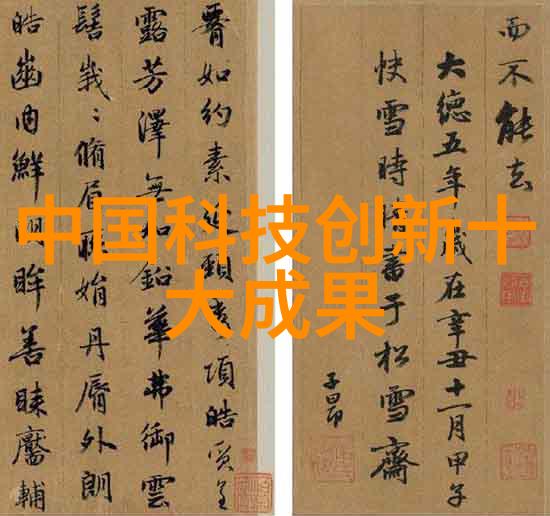 中国科技创新十
大成果
如約素延頸秀項皓質呈
露芳澤無加鉛華弗御雲
髻峩〻脩眉聯娟丹脣外朗
皓齒内鮮明眸善睞靨輔
而不能去
大德五年歲在辛丑十一月甲子
快雪時晴書于松雪齋
子昂